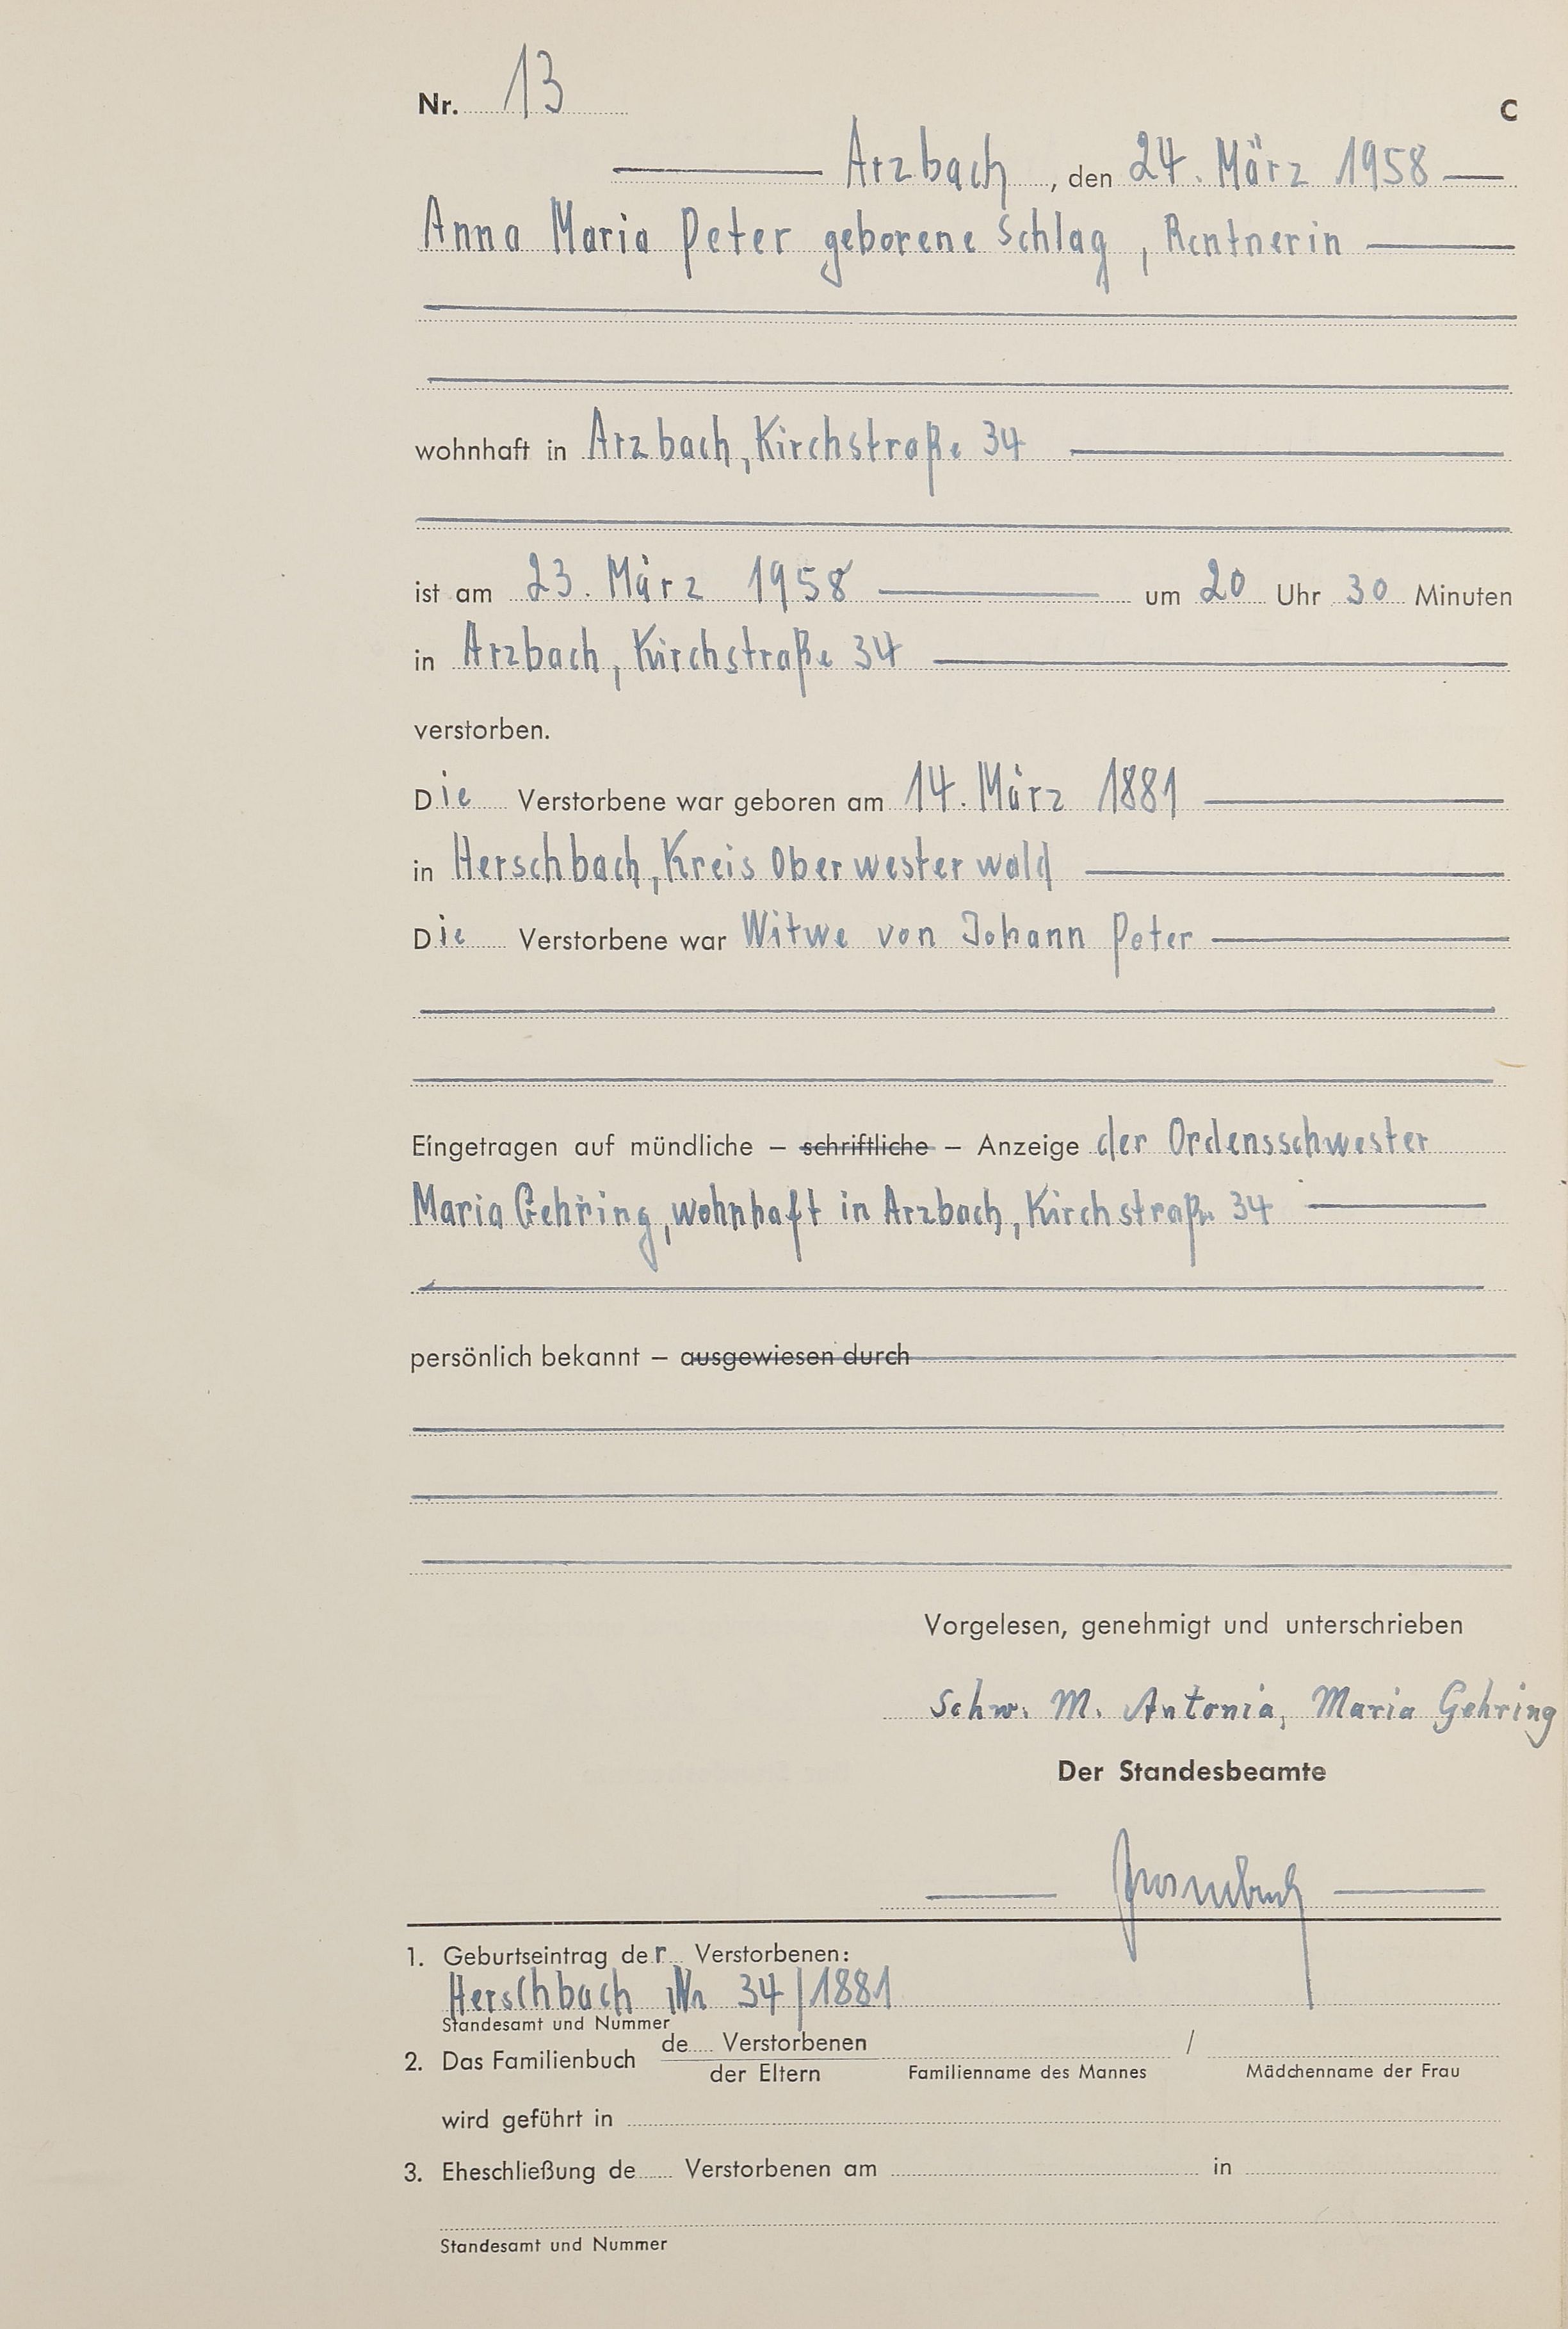 Nr. 13
C
Arzbach, den 24. März 1958
Anna Maria Peter geborene Schlag, Rentnerin
wohnhaft in Arzbach, Kirchstraße 34
ist am 23. März 1958 um 20 Uhr 30 Minuten
in Arzbach, Kirchstraße 34
verstorben.
Die Verstorbene war geboren am 14. März 1881
in Herschbach, Kreis Oberwesterwald
Die Verstorbene war Witwe von Johann Peter
Eingetragen auf mündliche – schriftliche – Anzeige der Ordensschwester
Maria Gehring, wohnhaft in Arzbach, Kirchstraße 34
persönlich bekannt – ausgewiesen durch
Vorgelesen, genehmigt und unterschrieben
Schw. M. Antonia, Maria Gehring
Der Standesbeamte
1. Geburtseintrag der Verstorbenen:
Herschbach Nr 34/1881
Standesamt und Nummer
2. Das Familienbuch de Verstorbenen /
der Eltern Familienname des Mannes Mädchenname der Frau
wird geführt in
3. Eheschließung de Verstorbenen am in
Standesamt und Nummer